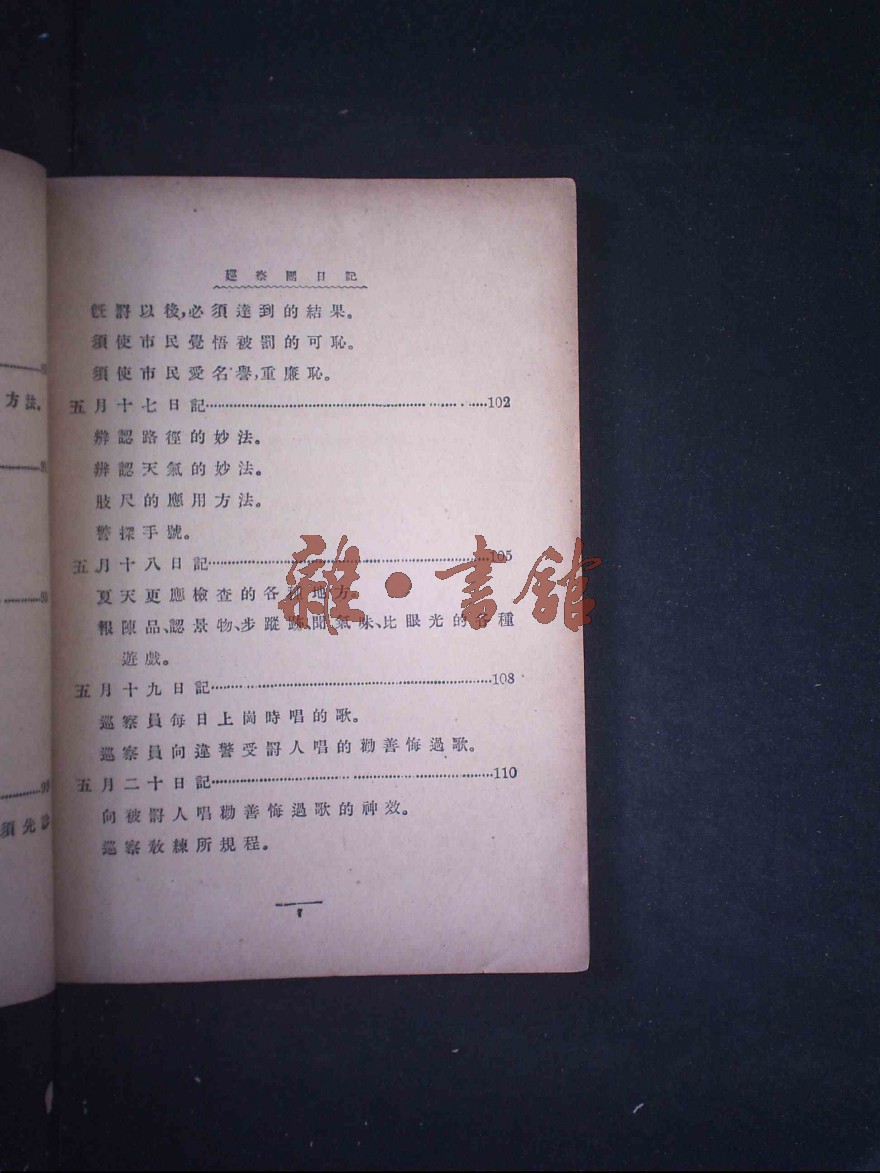 巡察團日記
旣罰以後,必須達到的結果。
須使市民覺悟被罰的可恥。
須使市民愛名譽,重廉恥。
五月十七日記……102
辨認路徑的妙法。
辨認天氣的妙法。
肢尺的應用方法。
警探手號。
五月十八日記……105
夏天更應檢查的各種地方。
報陳品、認景物、步蹤跡、聞氣味、比眼光的各種
遊戲。
五月十九日記……108
巡察員每日上崗時唱的歌。
巡察員向違警受罰人唱的勸善悔過歌。
五月二十日記……110
向被罰人唱勸善悔過歌的神效。
巡察敎練所規程。
7
方法。
須先診
雜·書館